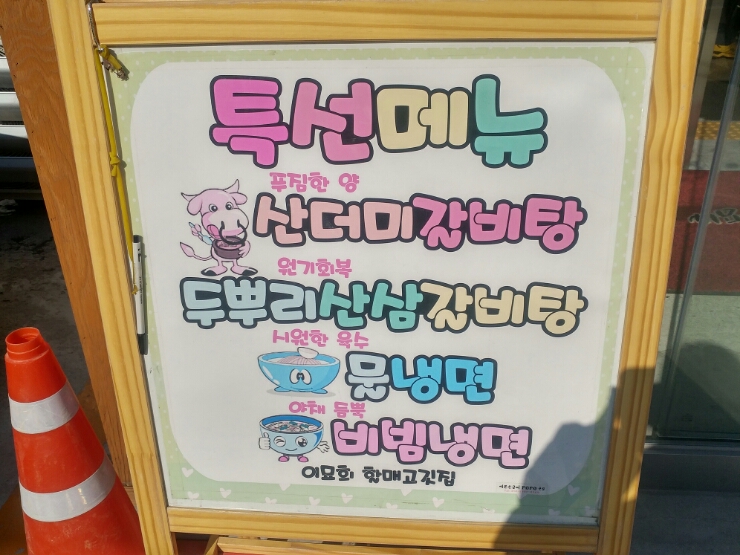 특선메뉴
푸짐한 양
산더미갈비탕
원기회복
두뿌리산삼갈비탕
시원한 육수
물냉면
야채 듬뿍
비빔냉면
이묘희 할매고깃집